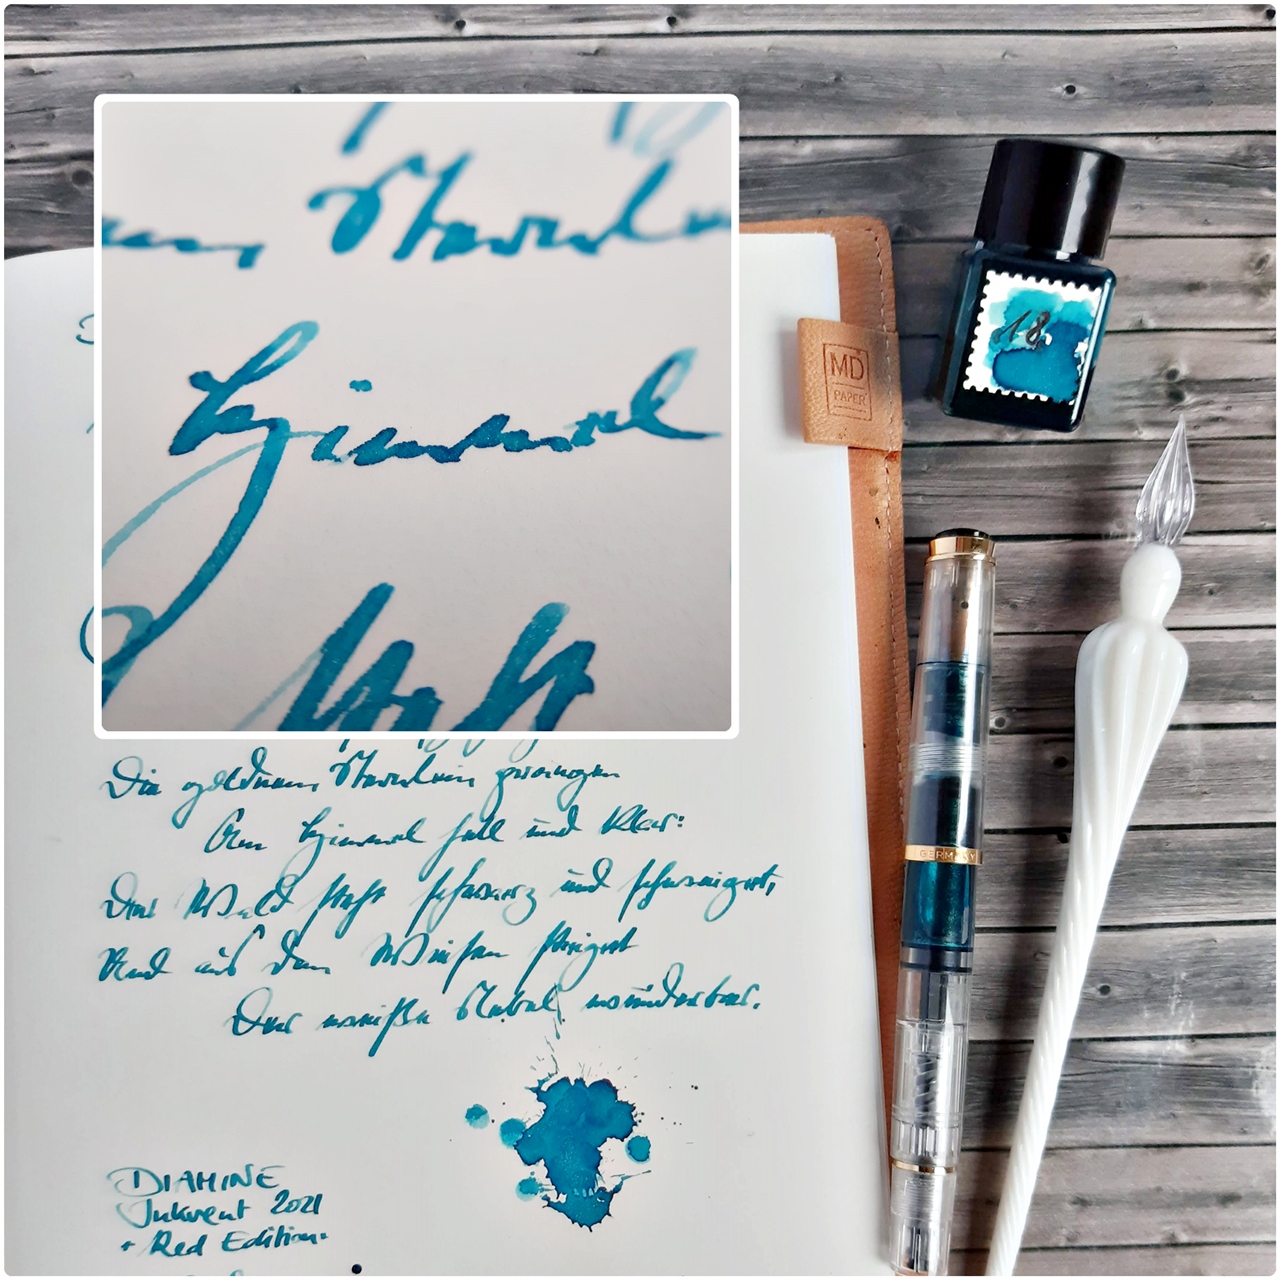 Sternlein
Himmel
steht
Die goldnen Sternlein prangen
Am Himmel hell und klar:
Der Wald steht schwarz und schweiget,
Und aus den Wiesen steiget
Der weiße Nebel wunderbar.
DIAMINE
Inkvent 2021
• Red Edition •
18
MD
PAPER
GERMANY